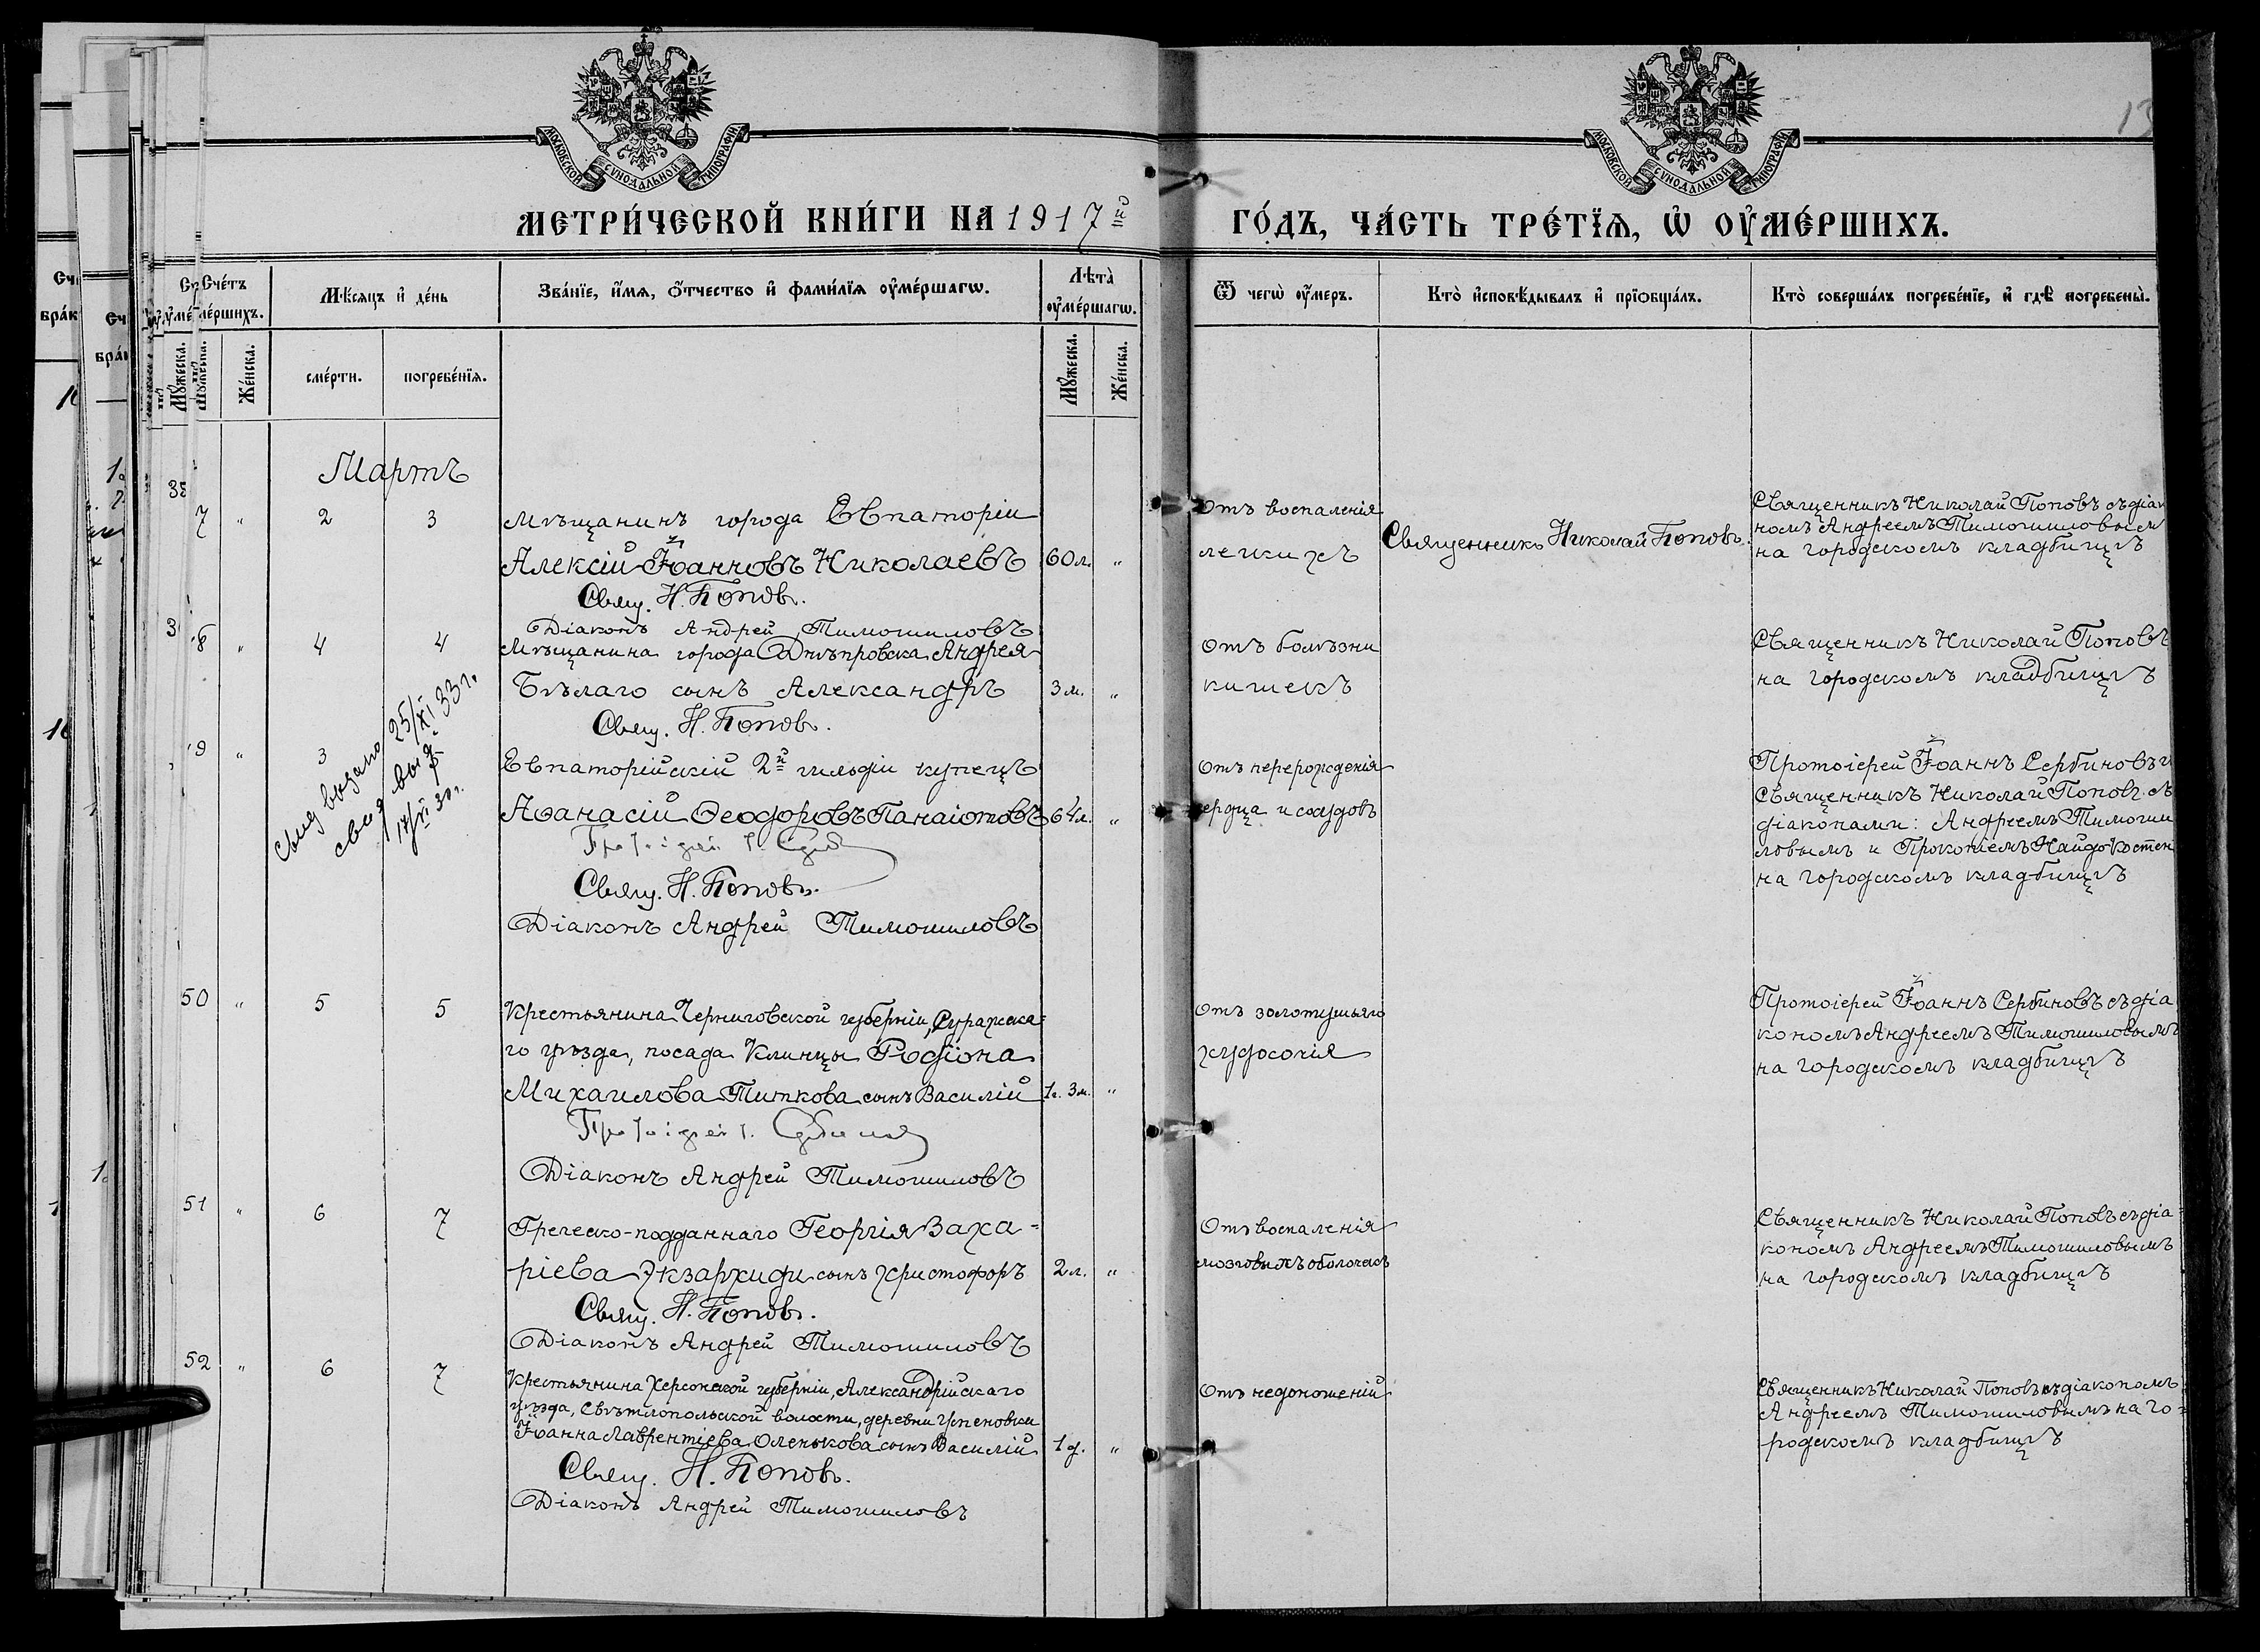 МОСКОВСКОЙ СѴНОДАЛЬНОЙ ТИПОГРАФІИ
МОСКОВСКОЙ СѴНОДАЛЬНОЙ ТИПОГРАФІИ
МЕТРИ́ЧЕСКОЙ КНИ́ГИ НА 1917й
ГО́ДЪ, ЧА́СТЬ ТРЕ́ТЇѦ, Ѡ҆ ОУ҆МЕ́РШИХЪ.
Сче́тъ
оуме́ршихъ.
Мѣ́сяцъ и҆ де́нь
Зва́нїе, и҆́мѧ, ѻ҆́тчество и҆ фами́лїѧ оу҆ме́ршагѡ.
Лѣ́та
оу҆ме́ршагѡ.
Ѿ чегѡ̀ оу҆́меръ.
Кто̀ и҆сповѣ́дывалъ и҆ прїѻбща́лъ.
Кто̀ соверша́лъ погребе́нїе, и҆ гдѣ̀ погребены̀.
Мꙋ́жеска.
Же́нска.
сме́рти.
погребе́нїѧ.
Мꙋ́жеска.
Же́нска.
Мартъ
7 " 2 3
Мѣщанинъ города Евпаторіи
Алексій Іоанновъ Николаевъ 60 л. "
Свящ. Н. Поповъ.
Діаконъ Андрей Тимошиловъ
Отъ воспаленія
легкихъ
Священникъ Николай Поповъ.
Священникъ Николай Поповъ съ діак
номъ Андреемъ Тимошиловым
на городскомъ кладбищѣ
8 " 4 4
Мѣщанина города Днѣпровска Андрея
Бѣлаго сынъ Александръ 3 м. "
Свящ. Н. Поповъ.
Отъ болѣзни
кишекъ
Священникъ Николай Поповъ
на городскомъ кладбищѣ
9 " 3
Свид выдано 25/XI 33 г.
свид выд
17/VI 30 г.
Евпаторійскій 2й гильдіи купецъ
Аѳанасій Ѳеодоровъ Панаіотовъ 64 л. "
Свящ. Н. Поповъ.
Діаконъ Андрей Тимошиловъ
Отъ перерожденія
сердца и сосудовъ
Протоіерей Іоаннъ Сербиновъ и
Священникъ Николай Поповъ съ
діаконами: Андреемъ Тимоши
ловымъ и Прокопіемъ Найдо Костен
на городскомъ кладбищѣ
50 " 5 5
Крестьянина Черниговской губерніи, Суражска=
го уѣзда, посада Клинцы Родіона
Михаилова Титкова сынъ Василій 1 г. 3 м. "
Протоіерей І. Сербиновъ
Діаконъ Андрей Тимошиловъ
Отъ золотушнаго
худосочія
Протоіерей Іоаннъ Сербиновъ съ діа
кономъ Андреемъ Тимошиловымъ
на городскомъ кладбищѣ
51 " 6 7
Греческо-подданнаго Георгія Заха-
ріева Экзархиди сынъ Христофоръ 2 л. "
Свящ. Н. Поповъ.
Діаконъ Андрей Тимошиловъ
Отъ воспаленія
мозговыхъ оболочекъ
Священникъ Николай Поповъ съ діа-
кономъ Андреемъ Тимошиловымъ
на городскомъ кладбищѣ
52 " 6 7
Крестьянина Херсонской губерніи, Александрійскаго
уѣзда, Свѣтлопольской волости, деревни Успеновки
Іоанна Лаврентіева Оленькова сынъ Василій 1 д. "
Свящ. Н. Поповъ.
Діаконъ Андрей Тимошиловъ
Отъ недоношеній
Священникъ Николай Поповъ съ діакономъ
Андреемъ Тимошиловымъ на го=
родскомъ кладбищѣ